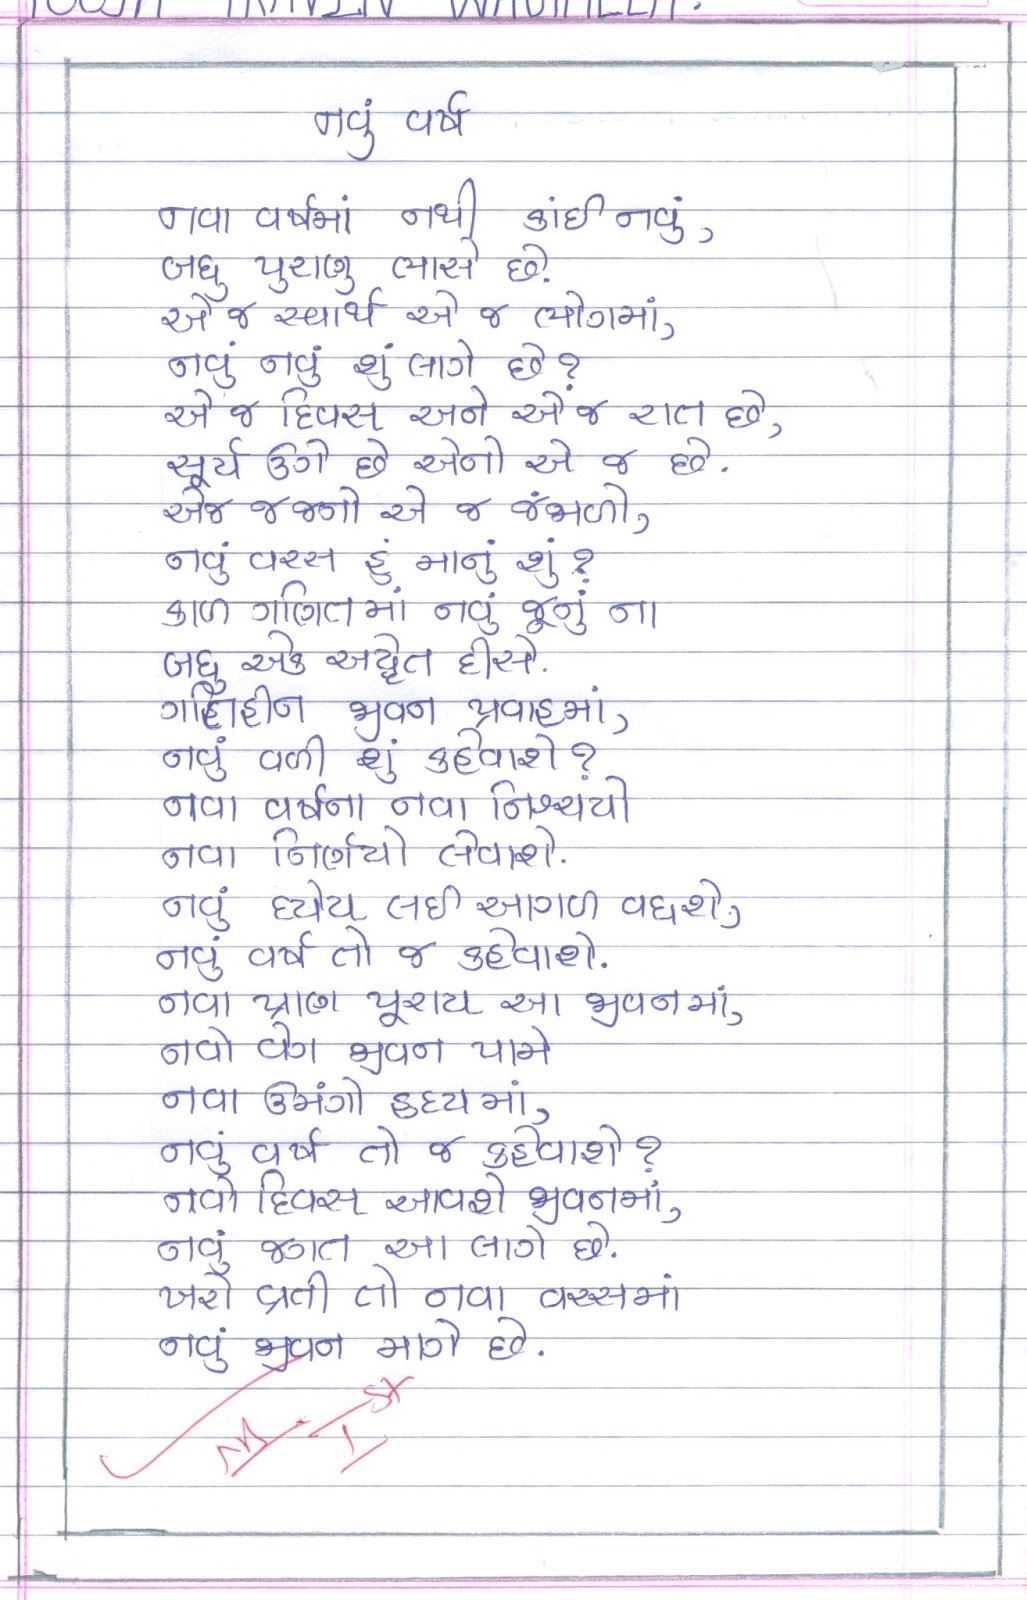 POOJA PRAVIN WAGHELA.
નવું વર્ષ
નવા વર્ષમાં નથી કાંઈ નવું,
બધુ પુરાણુ ભાસે છે.
એ જ સ્વાર્થ એ જ ભોગમાં,
નવું નવું શું લાગે છે?
એ જ દિવસ અને એ જ રાત છે,
સૂર્ય ઉગે છે એનો એ જ છે.
એજ જખ્નો એ જ જંભળો,
નવું વરસ હું માનું શું?
કાળ ગણિતમાં નવું જૂનું ના
બધુ એક અદ્વૈત દીસે.
ગતિહીન જીવન પ્રવાહમાં,
નવું વળી શું કહેવાશે?
નવા વર્ષના નવા નિશ્ચયો
નવા નિર્ણયો લેવાશે.
નવું ધ્યેય લઈ આગળ વધશે,
નવું વર્ષ તો જ કહેવાશે.
નવા પ્રાણ પૂરાય આ જીવનમાં,
નવો વેગ જીવન પામે
નવા ઉમંગો હૃદયમાં,
નવું વર્ષ તો જ કહેવાશે?
નવો દિવસ આવશે જીવનમાં,
નવું જગત આ લાગે છે.
ખરો વ્રતી તો નવા વરસમાં
નવું જીવન માગે છે.